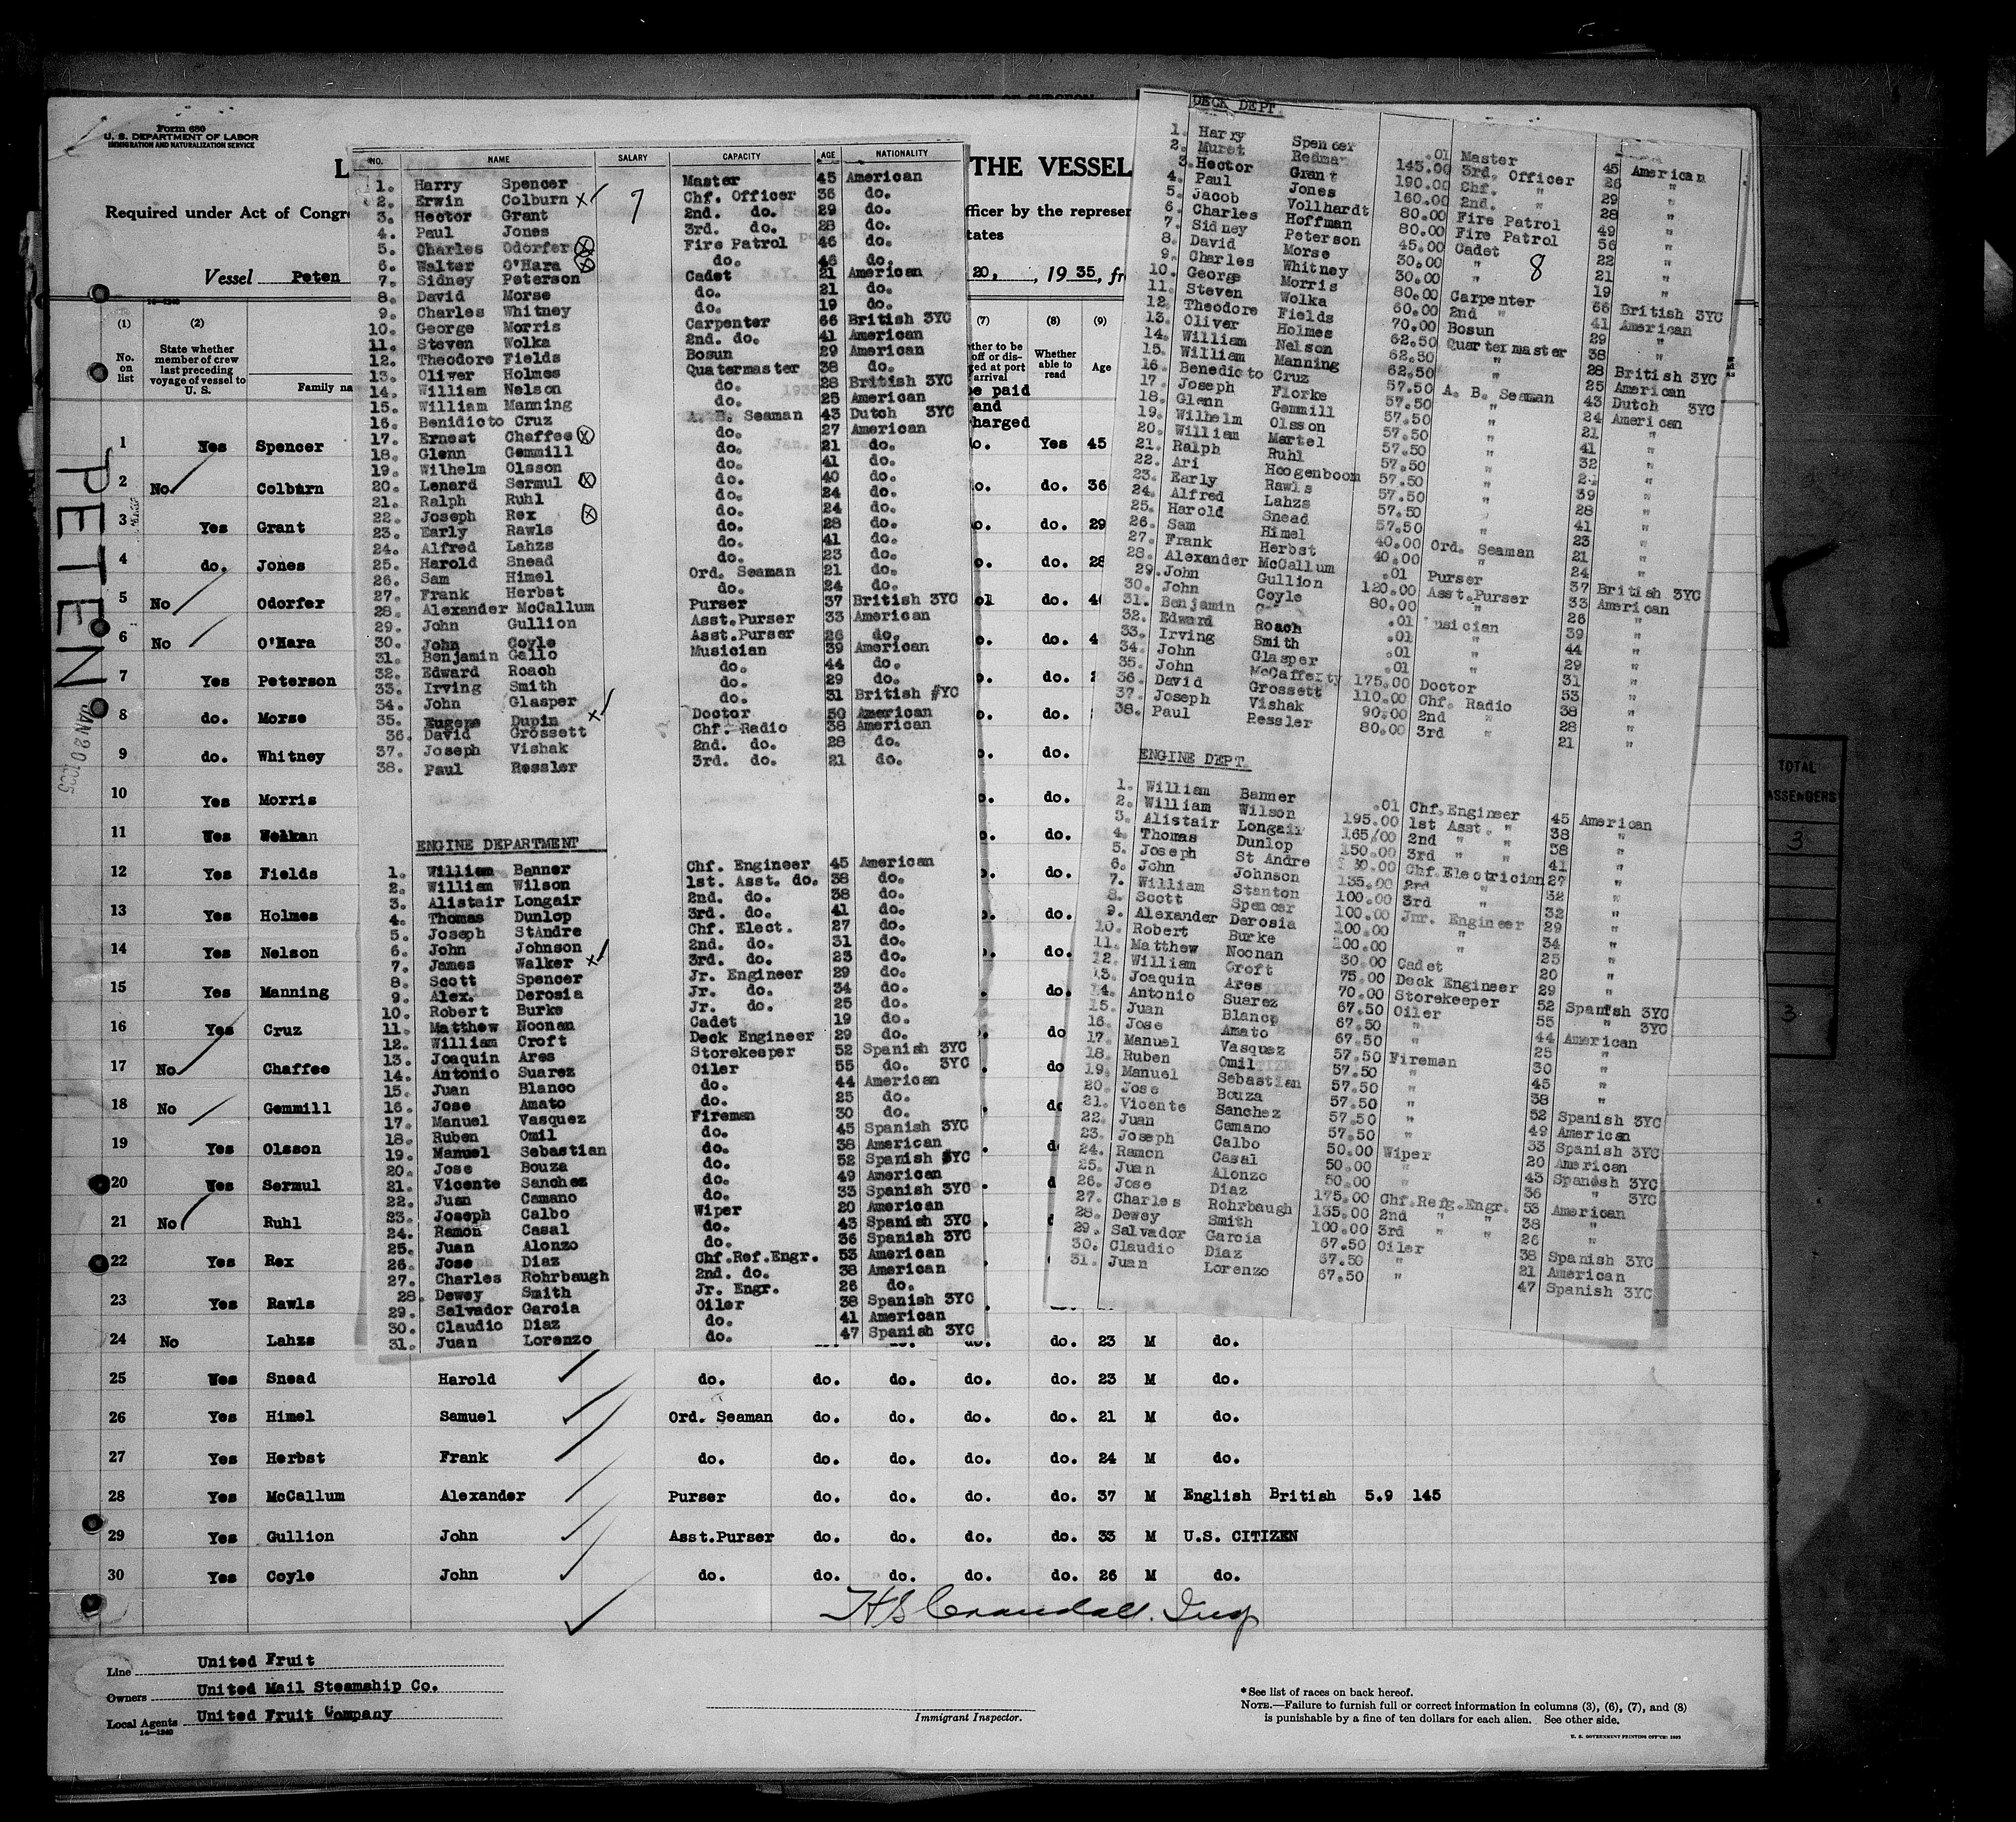 Form 680
U. S. DEPARTMENT OF LABOR
IMMIGRATION AND NATURALIZATION SERVICE
THE VESSEL
Required under Act of Congr
fficer by the represen
tates
Vessel Peten
20, , 1935, fr
PETEN
JAN 20 1935
(1) (2) (7) (8) (9)
No. on list
State whether member of crew last preceding voyage of vessel to U. S.
Family na
Whether able to read
Age
1 Yes Spencer Yes 45
2 No Colburn do. 36
3 Yes Grant do. 29
4 do. Jones do. 28
5 No Odorfer do.
6 No O'Hara do.
7 Yes Peterson do.
8 do. Morse do.
9 do. Whitney do.
10 Yes Morris do.
11 Yes Wolkan do.
12 Yes Fields do.
13 Yes Holmes do.
14 Yes Nelson do.
15 Yes Manning do.
16 Yes Cruz do
17 No Chaffee do
18 No Gemmill
19 Yes Olsson
20 Yes Sermul
21 No Ruhl
22 Yes Rex
23 Yes Rawls
24 No Lahzs do. 23 M do.
25 Yes Snead Harold do. do. do. do. do. 23 M do.
26 Yes Himel Samuel Ord. Seaman do. do. do. do. 21 M do.
27 Yes Herbst Frank do. do. do. do. do. 24 M do.
28 Yes McCallum Alexander Purser do. do. do. do. 37 M English British 5.9 145
29 Yes Gullion John Asst.Purser do. do. do. do. 33 M U.S. CITIZEN
30 Yes Coyle John do. do. do. do. do. 26 M do.
H S Crandall. Insp
Line United Fruit
Owners United Mail Steamship Co.
Local Agents United Fruit Company
14—1240
Immigrant Inspector.
*See list of races on back hereof.
NOTE.—Failure to furnish full or correct information in columns (3), (6), (7), and (8)
is punishable by a fine of ten dollars for each alien. See other side.
NO. NAME SALARY CAPACITY AGE NATIONALITY
7
1. Harry Spencer Master 45 American
2. Erwin Colburn X Chf. Officer 36 do.
3. Hector Grant 2nd. do. 29 do.
4. Paul Jones 3rd. do. 28 do.
5. Charles Odorfer X Fire Patrol 46 do.
6. Walter O'Hara X do. 46 do.
7. Sidney Peterson Cadet 21 American
8. David Morse do. 21 do.
9. Charles Whitney do. 19 do.
10. George Morris Carpenter 66 British 3YC
11. Steven Wolka 2nd. do. 41 American
12. Theodore Fields Bosun 29 American
13. Oliver Holmes Quatermaster 38 do.
14. William Nelson do. 28 British 3YC
15. William Manning do. 25 American
16. Benidicto Cruz A. B. Seaman 43 Dutch 3YC
17. Ernest Chaffee X do. 27 American
18. Glenn Gemmill do. 21 do.
19. Wilhelm Olsson do. 41 do.
20. Lenard Sermul X do. 40 do.
21. Ralph Ruhl do. 24 do.
22. Joseph Rex X do. 24 do.
23. Early Rawls do. 28 do.
24. Alfred Lahzs do. 41 do.
25. Harold Snead do. 23 do.
26. Sam Himel Ord. Seaman 21 do.
27. Frank Herbst do. 24 do.
28. Alexander McCallum Purser 37 British 3YC
29. John Gullion Asst.Purser 33 American
30. John Coyle Asst.Purser 26 do.
31. Benjamin Gallo Musician 39 American
32. Edward Roach do. 44 do.
33. Irving Smith do. 29 do.
34. John Glasper do. 31 British #YC
35. Eugene Dupin X Doctor 50 American
36. David Grossett Chf. Radio 38 American
37. Joseph Vishak 2nd. do. 28 do.
38. Paul Ressler 3rd. do. 21 do.
ENGINE DEPARTMENT
1. William Banner Chf. Engineer 45 American
2. William Wilson 1st. Asst. do. 38 do.
3. Alistair Longair 2nd. do. 38 do.
4. Thomas Dunlop 3rd. do. 41 do.
5. Joseph StAndre Chf. Elect. 27 do.
6. John Johnson 2nd. do. 31 do.
7. James Walker X 3rd. do. 23 do.
8. Scott Spencer Jr. Engineer 29 do.
9. Alex. Derosia Jr. do. 34 do.
10. Robert Burke Jr. do. 25 do.
11. Matthew Noonan Cadet 19 do.
12. William Croft Deck Engineer 29 do.
13. Joaquin Ares Storekeeper 52 Spanish 3YC
14. Antonio Suarez Oiler 55 do. 3YC
15. Juan Blanco do. 44 American
16. Jose Amato do. 25 do.
17. Manuel Vasquez Fireman 30 do.
18. Ruben Omil do. 45 Spanish 3YC
19. Manuel Sebastian do. 38 American
20. Jose Bouza do. 52 Spanish #YC
21. Vicente Sanchez do. 49 American
22. Juan Camano do. 33 Spanish 3YC
23. Joseph Calbo Wiper 20 American
24. Ramon Casal do. 43 Spanish 3YC
25. Juan Alonzo do. 36 Spanish 3YC
26. Jose Diaz Chf.Ref.Engr. 53 American
27. Charles Rohrbaugh 2nd. do. 38 American
28. Dewey Smith Jr. Engr. 26 do.
29. Salvador Garcia Oiler 38 Spanish 3YC
30. Claudio Diaz do. 41 American
31. Juan Lorenzo do. 47 Spanish 3YC
DECK DEPT.
8
1. Harry Spencer .01 Master 45 American
2. Muret Redman 145.00 3rd. Officer 26 "
3. Hector Grant 190.00 Chf. " 29 "
4. Paul Jones 160.00 2nd. " 28 "
5. Jacob Vollhardt 80.00 Fire Patrol 49 "
6. Charles Hoffman 80.00 Fire Patrol 56 "
7. Sidney Peterson 45.00 Cadet 22 "
8. David Morse 30.00 " 21 "
9. Charles Whitney 30.00 " 19 "
10. George Morris 80.00 Carpenter 66 British 3YC
11. Steven Wolka 60.00 2nd " 41 American
12. Theodore Fields 70.00 Bosun 29 "
13. Oliver Holmes 62.50 Quartermaster 38 "
14. William Nelson 62.50 " 28 British 3YC
15. William Manning 62.50 " 25 American
16. Benedicto Cruz 57.50 A. B. Seaman 43 Dutch 3YC
17. Joseph Florke 57.50 " 24 American
18. Glenn Gemmill 57.50 " 21 "
19. Wilhelm Olsson 57.50 " 41 "
20. William Martel 57.50 " 32 "
21. Ralph Ruhl 57.50 " 24 "
22. Ari Hoogenboom 57.50 " 39 "
23. Early Rawls 57.50 " 28 "
24. Alfred Lahzs 57.50 " 41 "
25. Harold Snead 57.50 " 23 "
26. Sam Himel 40.00 Ord. Seaman 21 "
27. Frank Herbst 40.00 " 24 "
28. Alexander McCallum .01 Purser 37 British 3YC
29. John Gullion 120.00 Asst.Purser 33 American
30. John Coyle 80.00 " 26 "
31. Benjamin .01 usician 39 "
32. Edward Roach .01 " 44 "
33. Irving Smith .01 " 29 "
34. John Glasper .01 " 31 "
35. John McCafferty 175.00 Doctor 53 "
36. David Grossett 110.00 Chf. Radio 38 "
37. Joseph Vishak 90.00 2nd " 28 "
38. Paul Ressler 80.00 3rd " 21 "
ENGINE DEPT.
1. William Banner .01 Chf.Engineer 45 American
2. William Wilson 195.00 1st Asst. " 38 "
3. Alistair Longair 165/00 2nd " " 38 "
4. Thomas Dunlop 150.00 3rd " " 41 "
5. Joseph St Andre Chf.Electrician 27 "
6. John Johnson 135.00 2nd " 32 "
7. William Stanton 100.00 3rd " 32 "
8. Scott Spencer 100.00 Jnr. Engineer 29 "
9. Alexander Derosia 100.00 " 34 "
10. Robert Burke 100.00 " 25 "
11. Matthew Noonan 30.00 Cadet 20 "
12. William Croft 75.00 Deck Engineer 29 "
13. Joaquin Ares 70.00 Storekeeper 52 Spanish 3YC
14. Antonio Suarez 67.50 Oiler 55 " 3YC
15. Juan Blanco 67.50 " 44 American
16. Jose Amato 67.50 " 25 "
17. Manuel Vasquez 57.50 Fireman 30 "
18. Ruben Omil 57.50 " 45 "
19. Manuel Sebastian 57.50 " 38 "
20. Jose Bouza 57.50 " 52 Spanish 3YC
21. Vicente Sanchez 57.50 " 49 American
22. Juan Camano 57.50 " 33 Spanish 3YC
23. Joseph Calbo 50.00 Wiper 20 American
24. Ramon Casal 50.00 " 43 Spanesh 3YC
25. Juan Alonzo 50.00 " 36 " 3YC
26. Jose Diaz 175.00 Chf.Refg.Engr. 53 American
27. Charles Rohrbaugh 135.00 2nd " " 38 "
28. Dewey Smith 100.00 3rd " " 26 "
29. Salvador Garcia 67.50 Oiler 38 Spanish 3YC
30. Claudio Diaz 67.50 " 21 American
31. Juan Lorenzo 67.50 " 47 Spanish 3YC
TOTAL
ASSENGERS
3
3